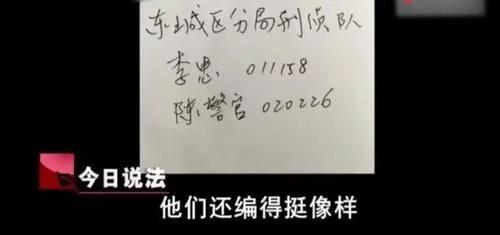 东城区分局刑侦队
李忠 011158
陈警官 020226
今日说法
他们还编得挺像样